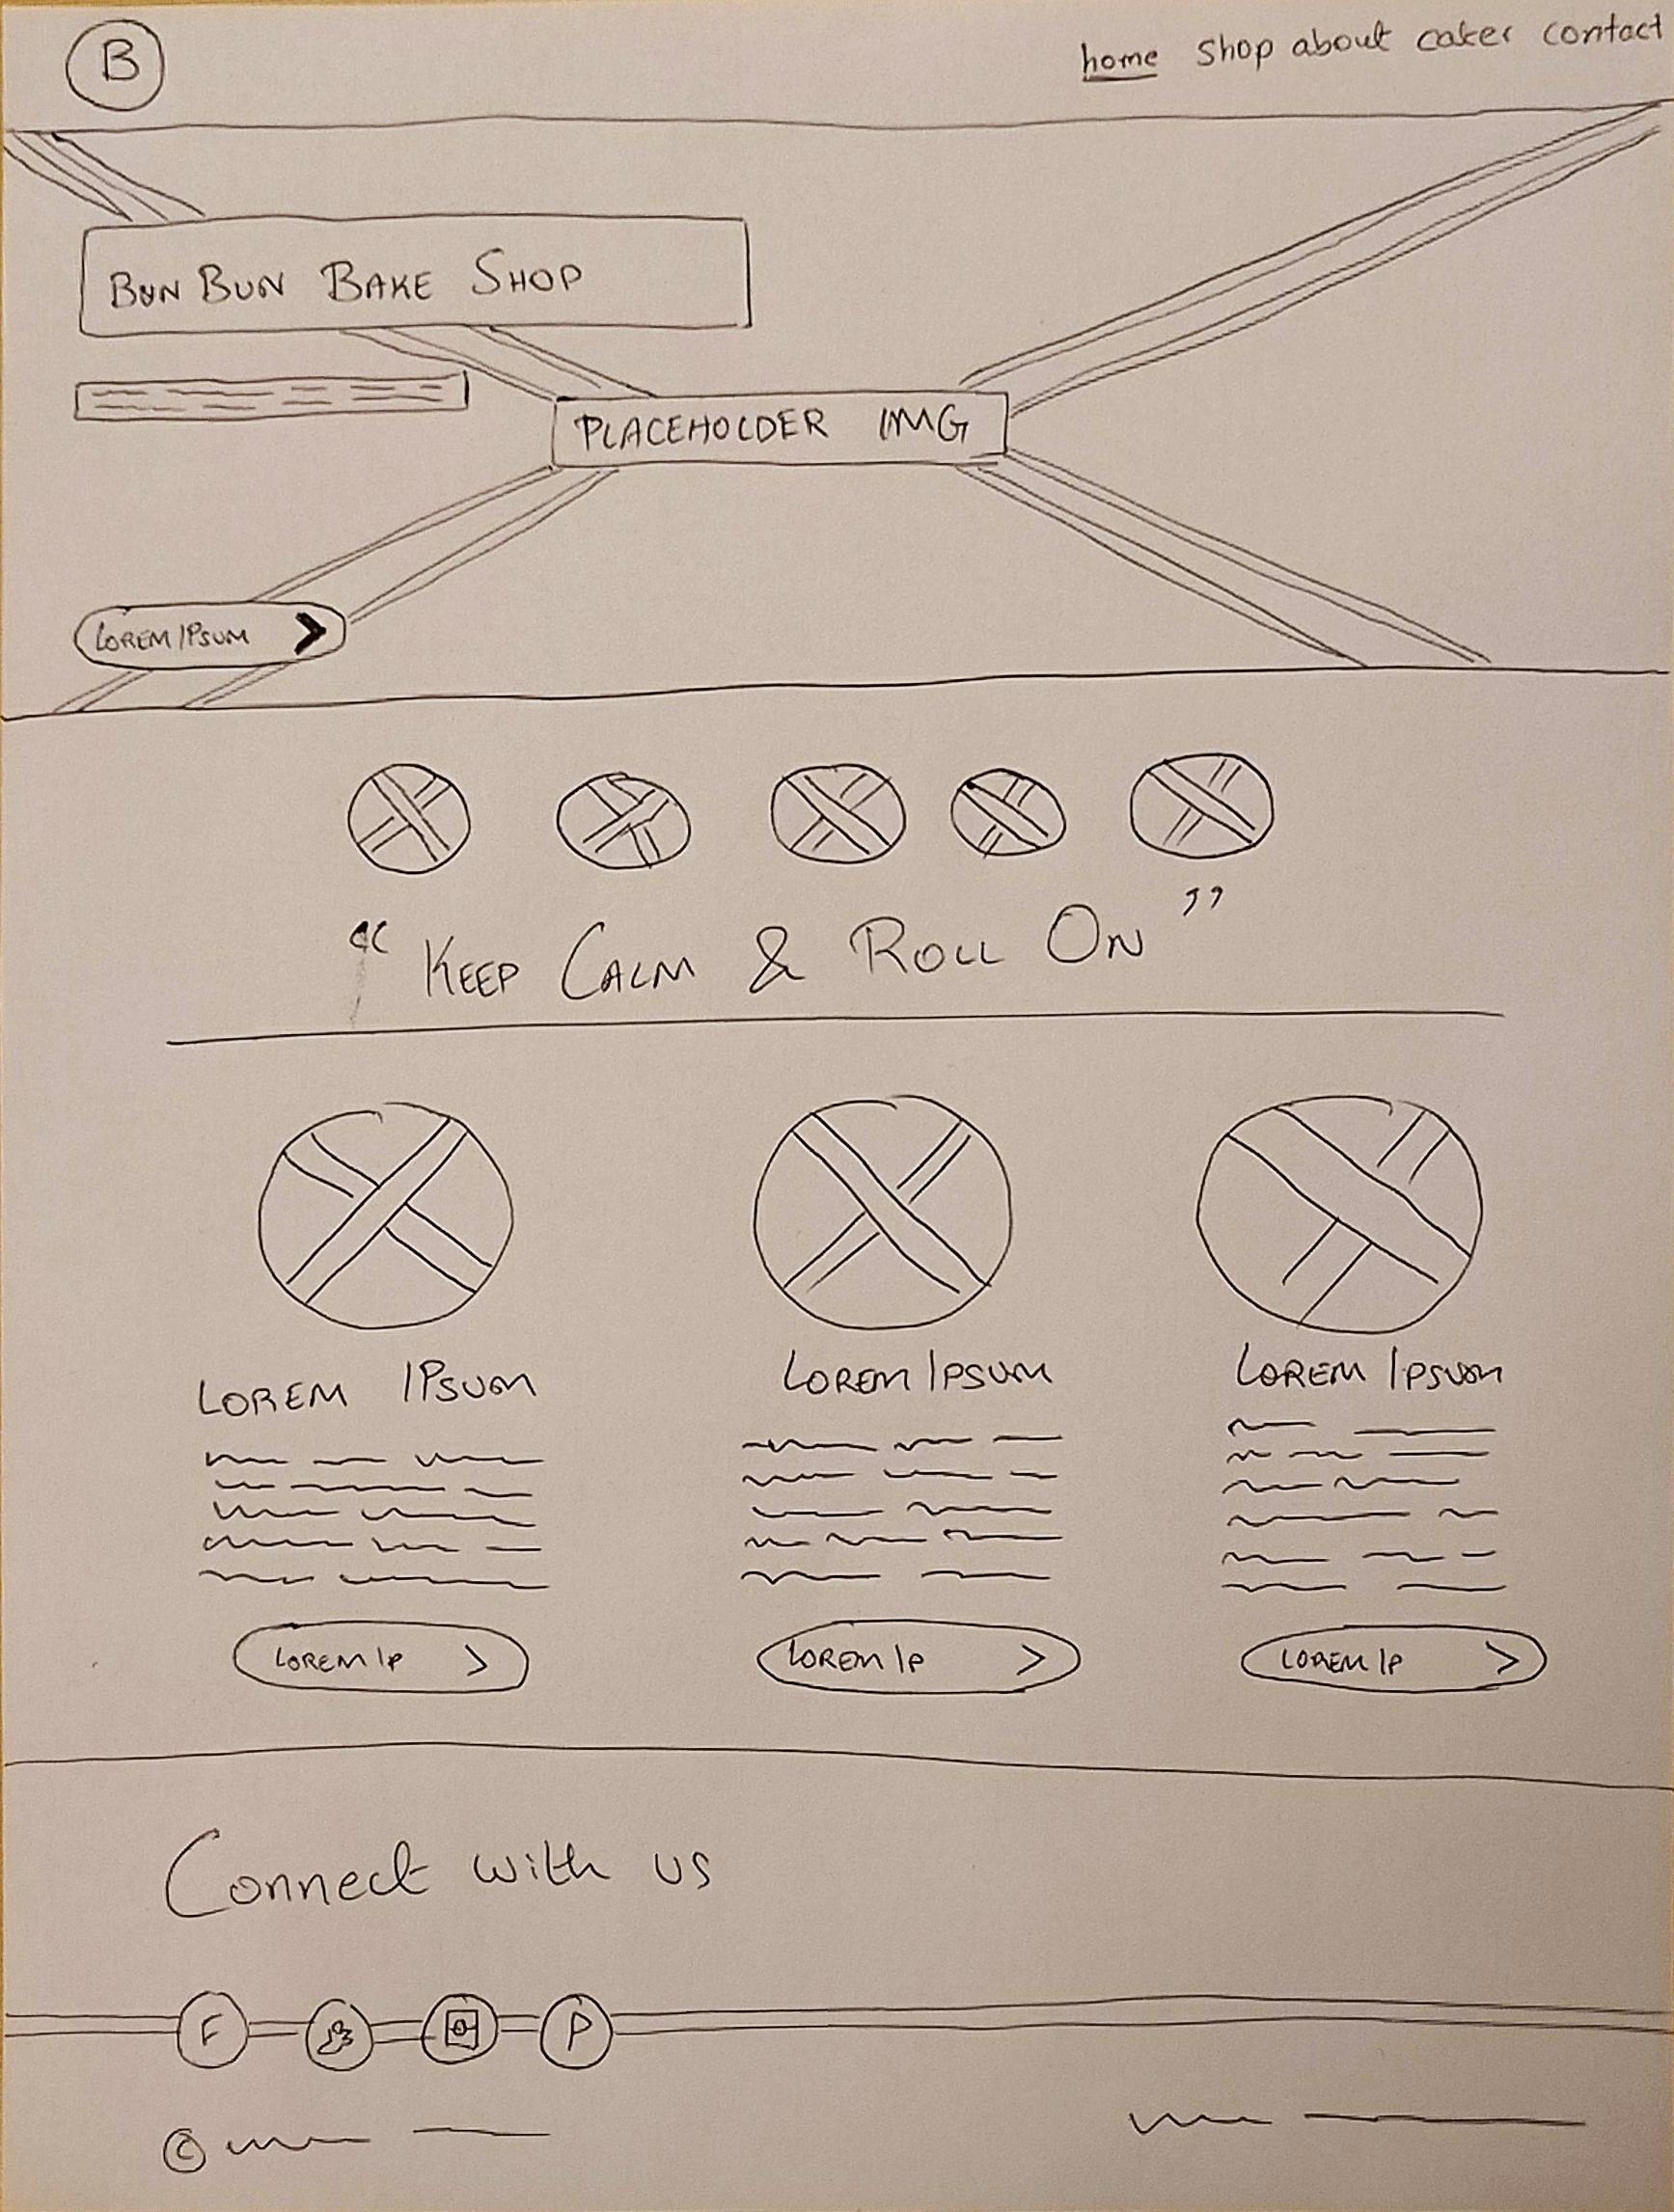 B
home shop about cakes contact
BUN BUN BAKE SHOP
PLACEHOLDER IMG
LOREM IPSUM >
“ KEEP CALM & ROLL ON ”
LOREM IPSUM LOREM IPSUM LOREM IPSUM
LOREM IP > LOREM IP > LOREM IP >
Connect with us
F P
©